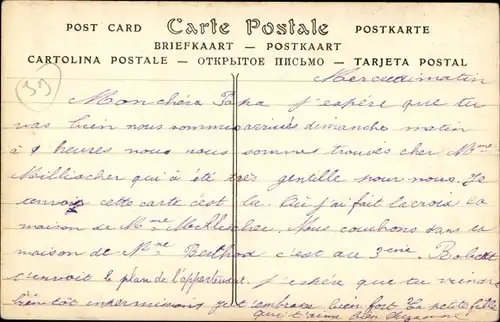 POST CARD Carte Postale POSTKARTE
BRIEFKAART — POSTKAART
CARTOLINA POSTALE — ОТКРЫТОЕ ПИСЬМО — TARJETA POSTAL
39
Mercredi matin
Mon chère Papa j'espère que tu
vas bien nous sommes arrivés dimanche matin
à 9 heures nous nous sommes trouvés cher Mme
qui à été très gentille pour nous. Je
t'envois cette carte c'est la. j'ai fait la croix la
maison de Mme. Nous couchons dans la
maison de Mme Berthod c'est au 3ème. Robert
t'envoit le plan de l'appartement. J'espère que tu viendra
bientôt en permission je t'embrasse bien fort. Ta petite fille
qui t'aime bien Suzanne